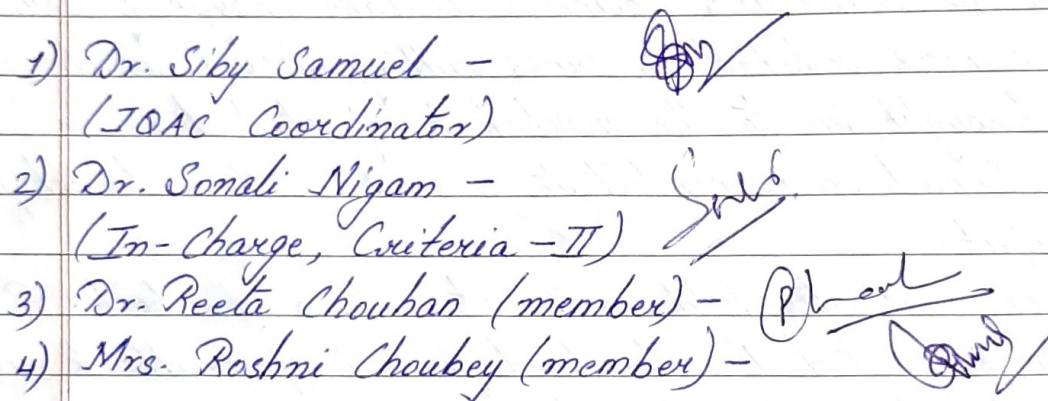 1) Dr. Siby Samuel -
(IQAC Coordinator)
2) Dr. Sonali Nigam -
(In-Charge, Criteria - II)
3) Dr. Reeta Chouhan (member) -
4) Mrs. Roshni Choubey (member) -